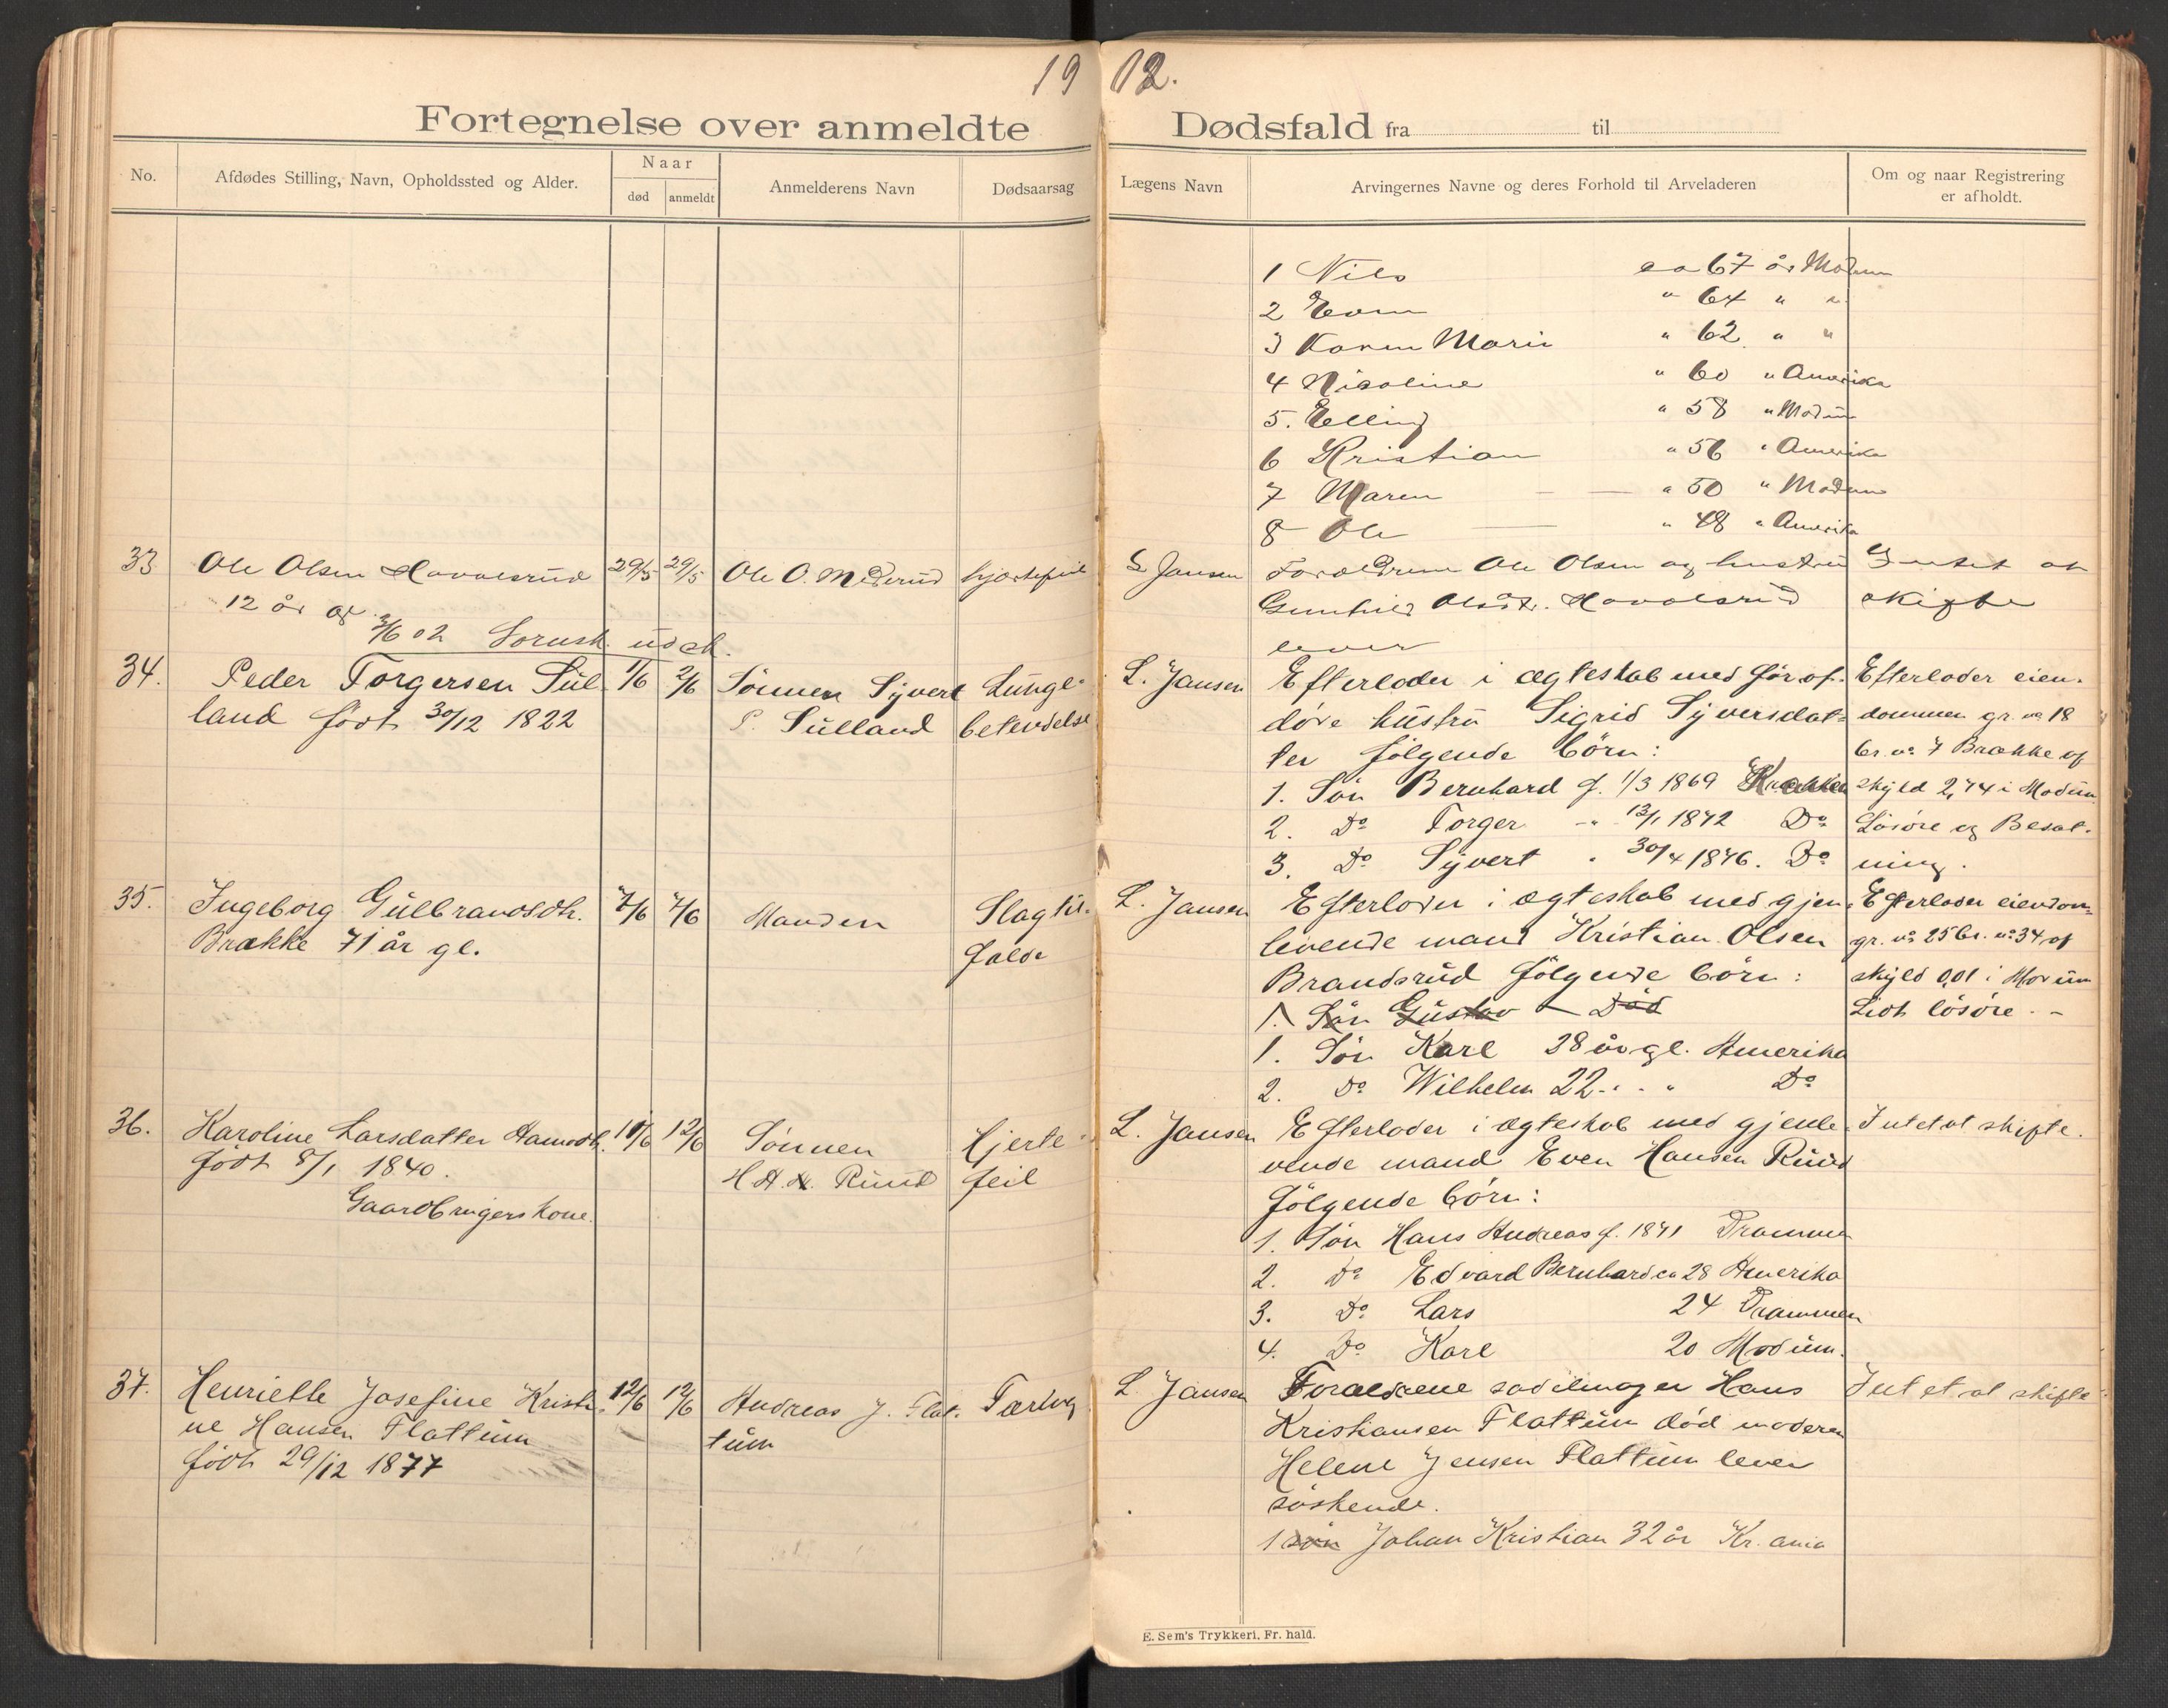 19 02.
Fortegnelse over anmeldte Dødsfald fra til
No.
Afdødes Stilling, Navn, Opholdssted og Alder.
Naar
død anmeldt
Anmelderens Navn
Dødsaarsag
Lægens Navn
Arvingernes Navne og deres Forhold til Arveladeren
Om og naar Registrering
er afholdt.
1 Nils ca 67 år Modum
2 Even " 64 " "
3 Karen Marie " 62 " "
4 Nicoline " 60 " Amerika
5. Elling " 58 " Modum
6 Kristian " 56 " Amerika
7 Maren " 50 " Modum
8 Ole " 48 " Amerika
33 Ole Olsen 29/5 29/5 Ole O. hjertefeil
12 år gl
3/6 02 Sorensk. udsk.
L Jansen Forældrene Ole Olsen og hustru
Gunhild Olsdt.
lever
Intet at
skifte
34. Peder Torgersen Sul- 1/6 2/6 Sønnen Syvert Lunge-
land født 30/12 1822 P. Sulland betendelse
L. Jansen Efterlader i ægteskab med før af-
døde hustru Sigrid Syversdat-
ter følgende børn:
1. Søn Bernhard f. 1/3 1869
2. Do Torger " 13/1 1872 Do
3. Do Syvert " 30/4 1876. Do
Efterlader eien-
dommen gr. no 18
br. no 7 Brække af
skyld 2,74 i Modum
Løsøre og Besæt-
ning.
35. Ingeborg Gulbrandsdtr. 7/6 7/6 Manden Slagtil-
Brække 71 år gl. fælde
L. Jansen Efterlader i ægteskab med gjen-
levende mand Kristian Olsen
Brandsrud følgende børn:
1. Søn Gustav - Død
1. Søn Karl 28 år gl. Amerika
2. Do Wilhelm 22 " " Do
Efterlader eiendom
gr. no 25 br. no 34 af
skyld 0,01 i Modum
Lidt løsøre. -
36. Karoline Larsdatter 11/6 12/6 Sønnen Hjerte-
født 8/1 1840. H. A. Ruud feil
Gaardbrugerskone.
L. Jansen Efterlader i ægteskab med gjenle-
vende mand Even Hansen Ruud
følgende børn:
1. Søn Hans Andreas f. 1871 Drammen
2. Do Edvard Bernhard ca 28 Amerika
3. Do Lars 24 Drammen
4. Do Karl 20 Modum.
Intet at skifte.
37. Henriette Josefine Kristi- 12/6 12/6 Andreas J. Flat- Tæring
ne Hansen Flattum tum
født 29/12 1877
L. Jansen Forældrene sadelmager Hans
Kristiansen Flattum død moderen
Helene Jensen Flattum lever
søskende.
1 søn Johan Kristian 32 år Kr.ania
Intet at skifte
E. Sem's Trykkeri, Fr. hald.